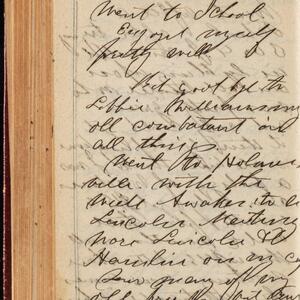 Went to School
Enjoyed myself
pretty well
Bid good bye to
Libbie Williamson my
old combatant in
all things.
Went to Holmes
ville with the
Wide Awakes to a
Lincoln Meeting
Wore Lincoln &
Hamlin on my ca
Saw many of my
old